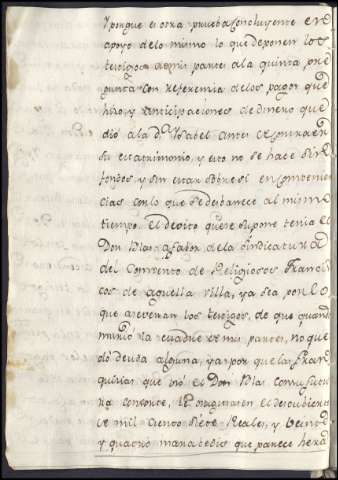 Y porque es otra prueba concluyente en
apoyo de lo mismo lo que deponen los
testigos de mi parte a la quinta pre
gunta con referencia de los pagos que
hizo y anticipaciones de dinero que
dió a la D.ª Ysabel antes de contraer
su matrimonio, y esto no se hace sin
fondos y sin estar sobre sí en
cias con lo que se desbanece al mismo
tiempo. El devito que se supone tenia el
Don Blas a fabor de la sindicatura
del Comvento de Religiosos Francis
cos de aquella villa, ya sea por lo
que aseveran los testigos, de que quando
murió la madre de mi parte, no que
dó deuda alguna, ya por que las Fran
quicias que dió el Don Blas con su
consorte, el descubierto
de mil ciento siete Reales, y veinte
y quatro maravedis que parece